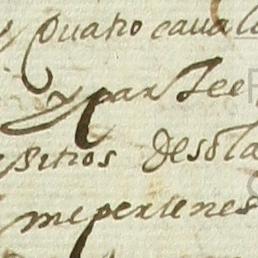 y quatro caual
y parte
sitios desola
me pertenes